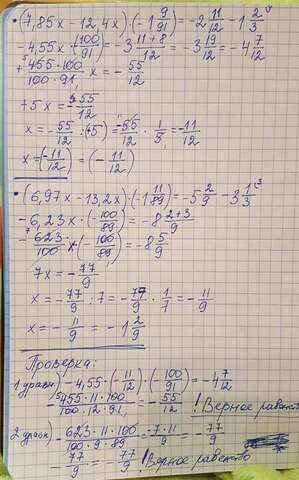 • (7,85x - 12,4x) · (-1 9/91) = -2 11/12 - 1 2/3
-4,55x · (-100/91) = -3 (11+8)/12 = -3 19/12 = -4 7/12
+ (455·100)/(100·91) · x = - 55/12
+5x = - 55/12
x = - 55/12 : (+5) = -55/12 · 1/5 = -11/12
x = (-11/12) = (- 11/12)
• (6,97x - 13,2x) · (-1 11/89) = -5 2/9 - 3 1/3
-6,23x · (-100/89) = -8 (2+3)/9
- 623/100 x (- 100/89) = -8 5/9
7x = - 77/9
x = - 77/9 : 7 = - 77/9 · 1/7 = - 11/9
x = - 11/9 = - 1 2/9
Проверка:
1 уравн) -4,55 · (- 11/12) · (- 100/91) = -4 7/12
- (455·11·100)/(100·12·91) = - 55/12 ! Верное равенство
2 уравн) - (623·11·100)/(100·9·89) = (-7·11)/9 = - 77/9
- 77/9 = - 77/9 ! Верное равенство